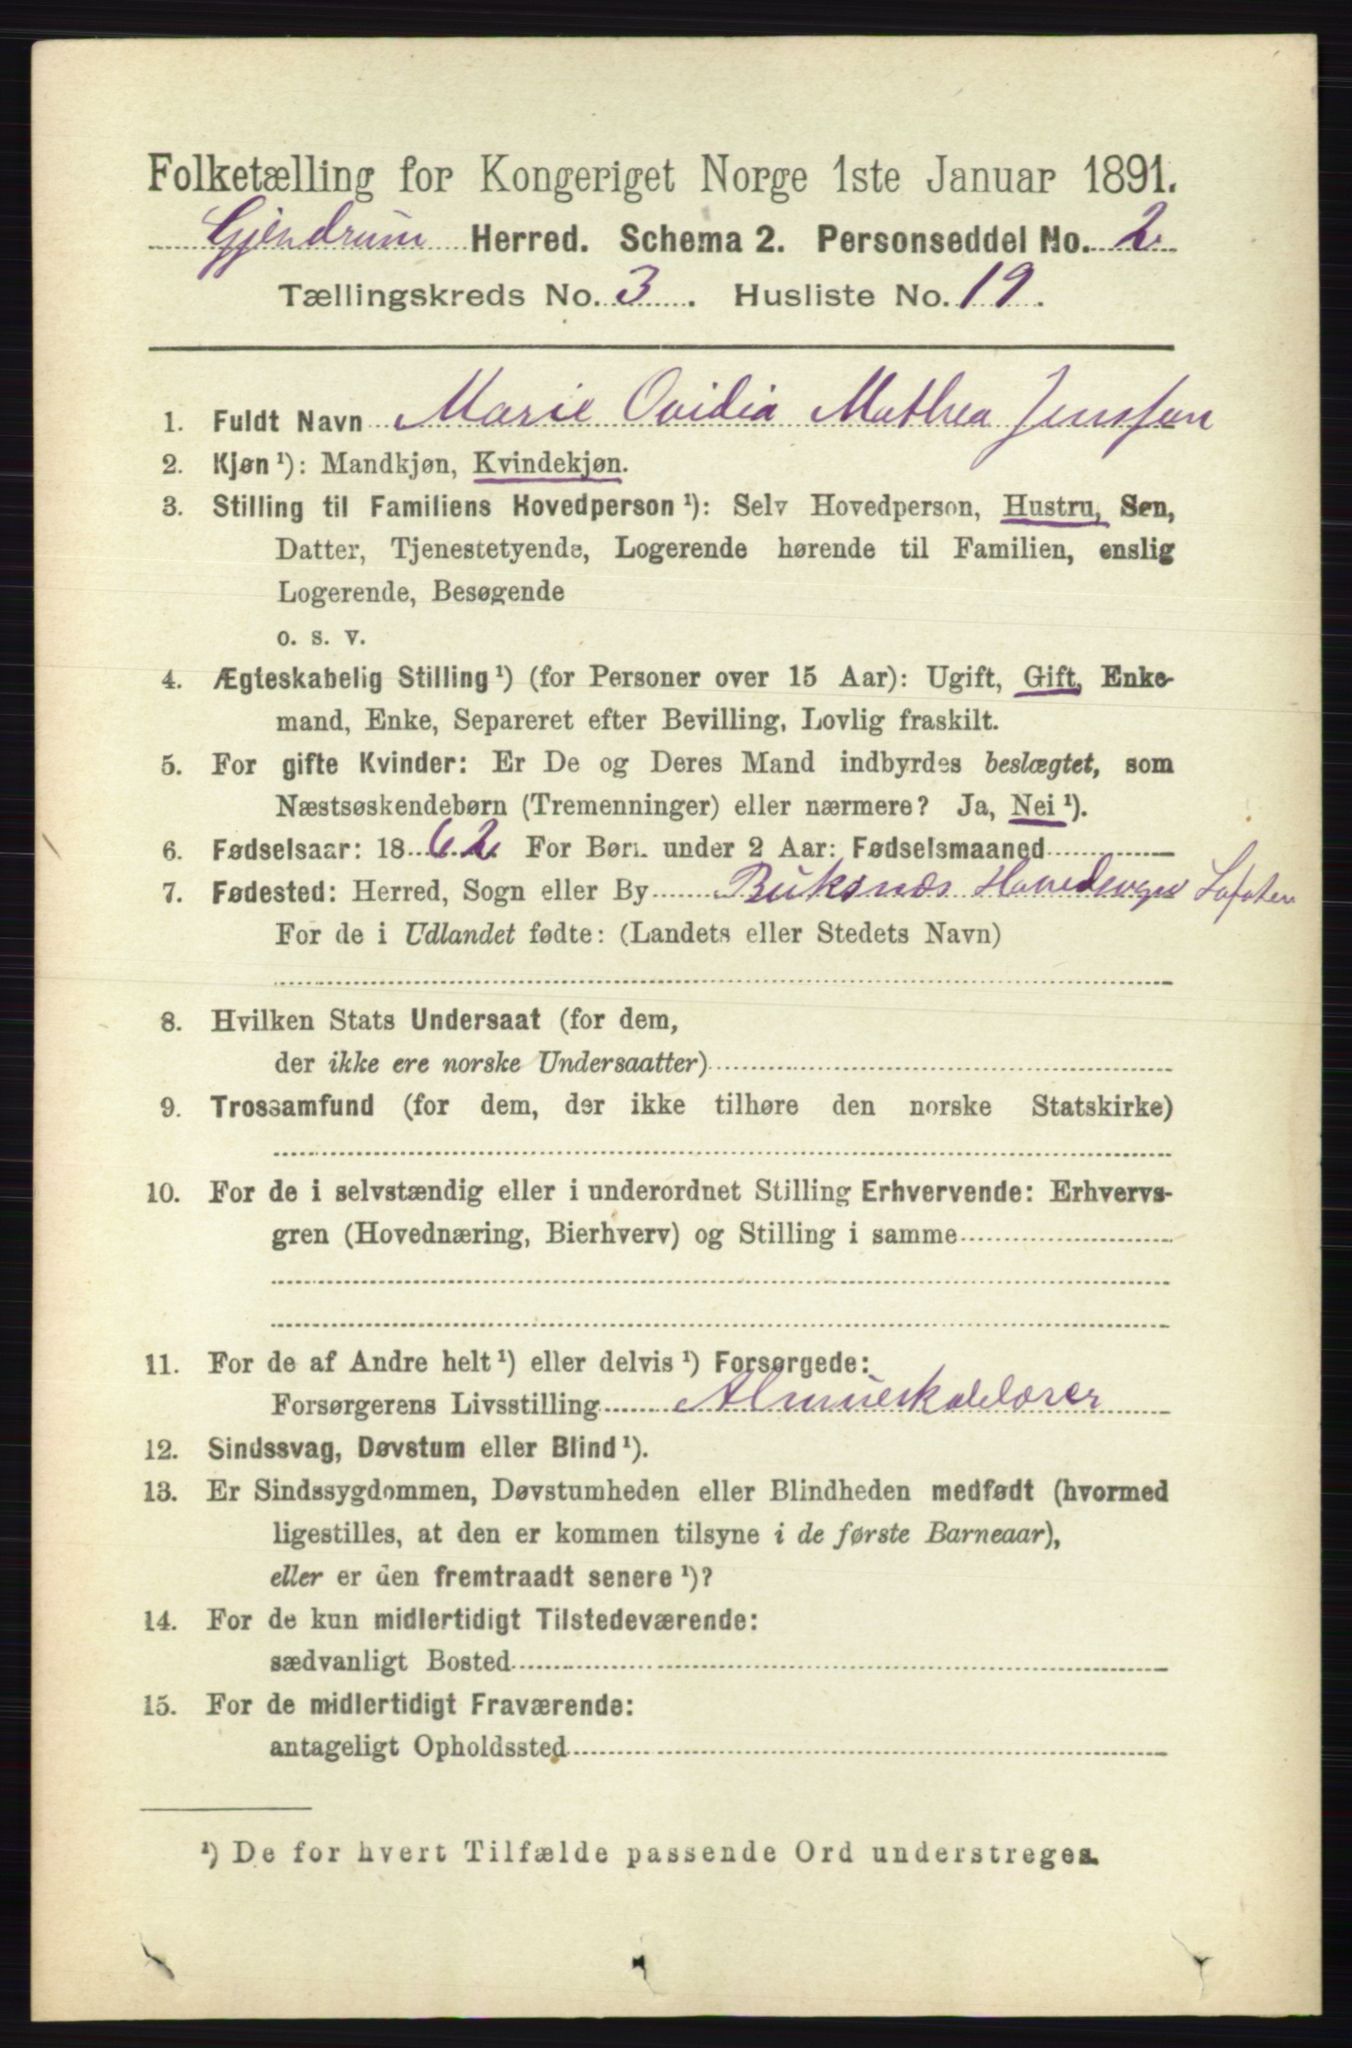 Folketælling for Kongeriget Norge 1ste Januar 1891.
Gjerdrum Herred. Schema 2. Personseddel No. 2
Tællingskreds No. 3. Husliste No. 19.
1. Fuldt Navn Marie Ovidia Mathea Jenssen
2. Kjøn ¹): Mandkjøn, Kvindekjøn.
3. Stilling til Familiens Hovedperson ¹): Selv Hovedperson, Hustru, Søn,
Datter, Tjenestetyende, Logerende hørende til Familien, enslig
Logerende, Besøgende
o. s. v.
4. Ægteskabelig Stilling ¹) (for Personer over 15 Aar): Ugift, Gift, Enke-
mand, Enke, Separeret efter Bevilling, Lovlig fraskilt.
5. For gifte Kvinder: Er De og Deres Mand indbyrdes beslægtet, som
Næstsøskendebørn (Tremenninger) eller nærmere? Ja, Nei ¹).
6. Fødselsaar: 1862 For Børn under 2 Aar: Fødselsmaaned
7. Fødested: Herred, Sogn eller By Buksnæs Hovedsogn Lofoten
For de i Udlandet fødte: (Landets eller Stedets Navn)
8. Hvilken Stats Undersaat (for dem,
der ikke ere norske Undersaatter)
9. Trossamfund (for dem, der ikke tilhøre den norske Statskirke)
10. For de i selvstændig eller i underordnet Stilling Erhvervende: Erhvervs-
gren (Hovednæring, Bierhverv) og Stilling i samme
11. For de af Andre helt ¹) eller delvis ¹) Forsørgede:
Forsørgerens Livsstilling Almueskolelærer
12. Sindssvag, Døvstum eller Blind ¹).
13. Er Sindssygdommen, Døvstumheden eller Blindheden medfødt (hvormed
ligestilles, at den er kommen tilsyne i de første Barneaar),
eller er den fremtraadt senere ¹)?
14. For de kun midlertidigt Tilstedeværende:
sædvanligt Bosted
15. For de midlertidigt Fraværende:
antageligt Opholdssted
¹) De for hvert Tilfælde passende Ord understreges.